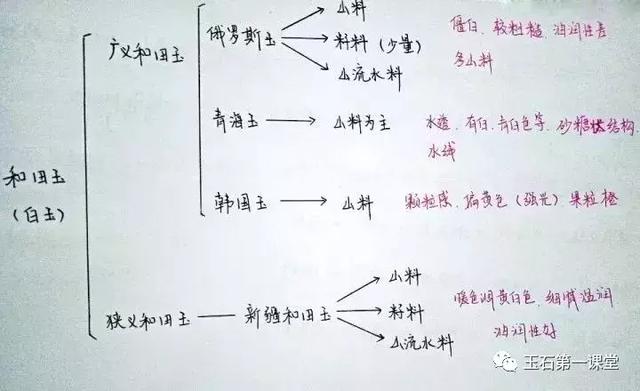 山料
广义和田玉
俄罗斯玉
籽料（少量）
山流水料
僵白、较粗糙、油润性差
多山料
青海玉
山料为主
水透、有白、青白色等、砂糖状结构、
水线
和田玉
（白玉）
韩国玉
山料
颗粒感、偏黄色（强光）果粒橙
山料
狭义和田玉
新疆和田玉
籽料
山流水料
暖色调黄白色、细腻温润
油润性好
玉石第一课堂